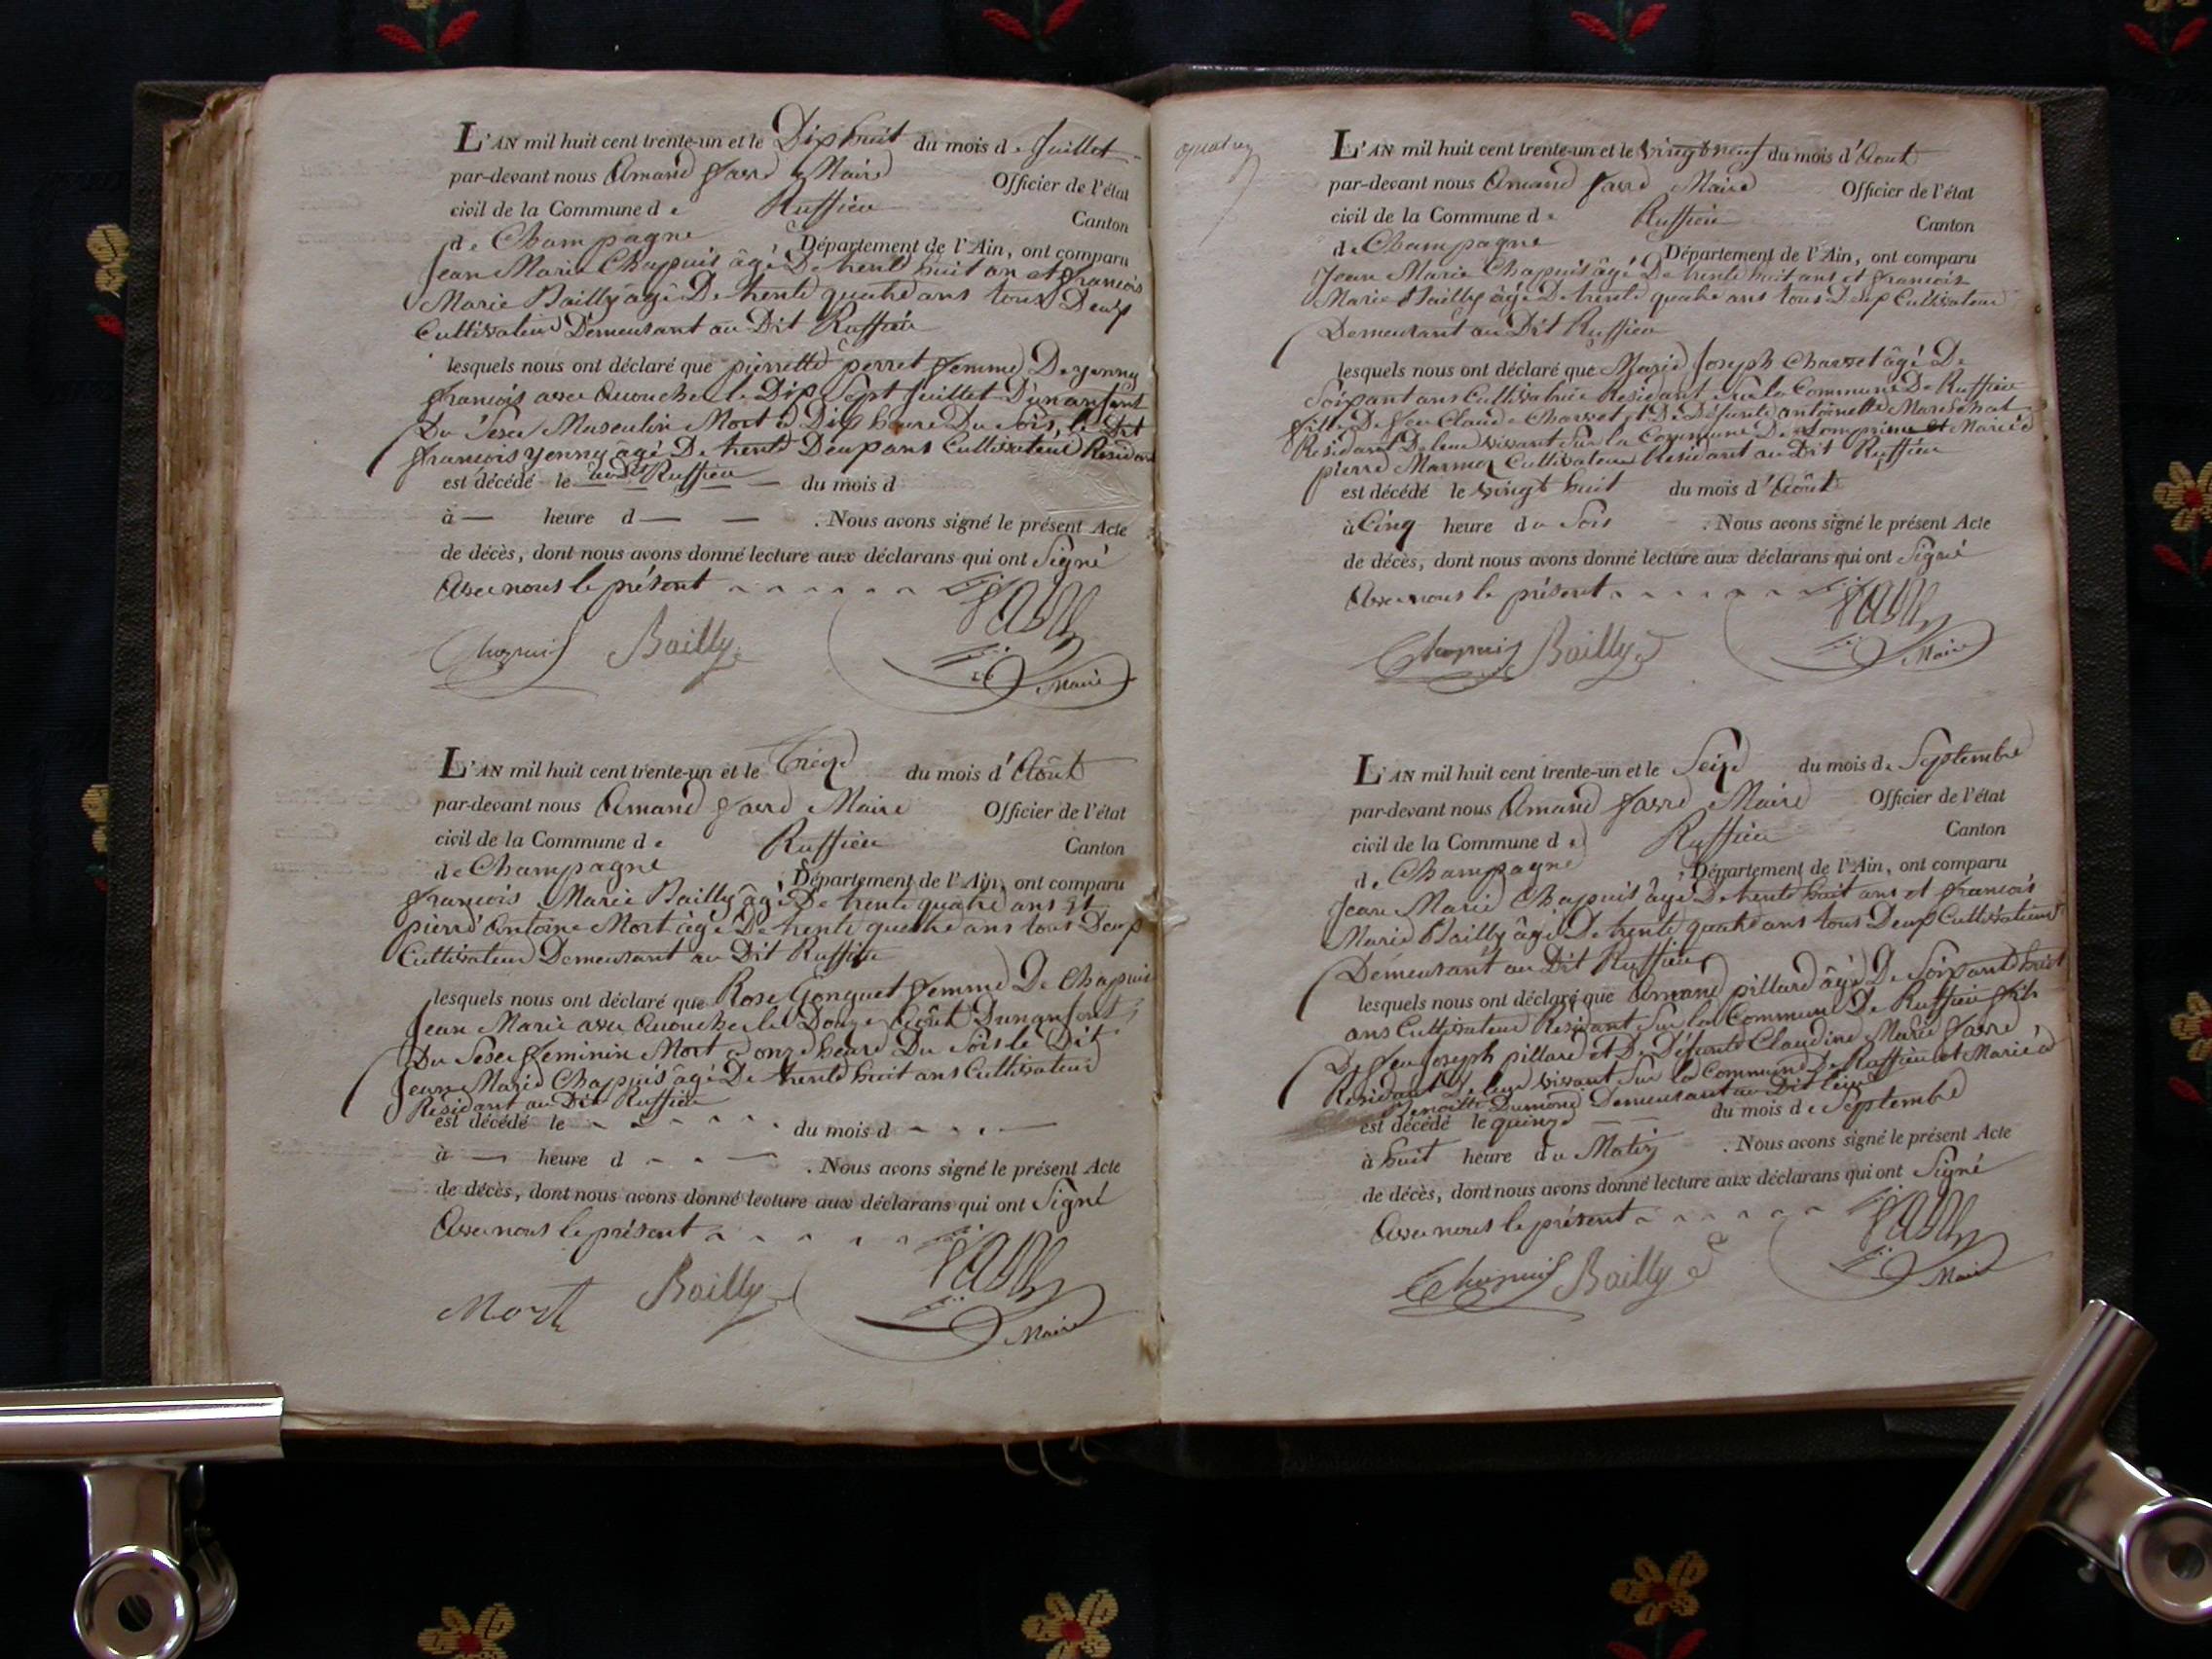 L'AN mil huit cent trente-un et le Dix huit du mois de Juillet
par-devant nous Amand favre Maire Officier de l'état
civil de la Commune de Ruffieu Canton
de Champagne, Département de l'Ain, ont comparu
Jean Marie Chapuis âgé De trente huit an et francois
Marie Bailly âgé De trente quatre ans tous Deux
Cultivateur Demeurant au Dit Ruffieu
lesquels nous ont déclaré que pierrette perret femme De yenny
francois avec Aucoucher le Dix Sept Juillet D'unanfant
Du Sexe Masculin Mort a Dix heure Du Soir, le Dit
francois yenny âgé De trente Deux ans Cultivateur Residant
est décédé le au Dit Ruffieu du mois d
à — heure d — — . Nous avons signé le présent Acte
de décès, dont nous avons donné lecture aux déclarans qui ont Signé
Avec nous le présent
Chapuis Bailly favre
Maire
L'AN mil huit cent trente-un et le Treize du mois d'Août
par-devant nous Amand favre Maire Officier de l'état
civil de la Commune de Ruffieu Canton
de Champagne, Département de l'Ain, ont comparu
francois Marie Bailly âgé De trente quatre ans Et
pierre Antoine Mort âgé De trente quatre ans tous Deux
Cultivateur Demeurant au Dit Ruffieu
lesquels nous ont déclaré que Rose Gonguet femme De Chapuis
Jean Marie avec Aucoucher le Douze Août Dunanfant
Du Sexe feminin Mort a onze heure Du Soir le Dit
Jean Marie Chapuis âgé De trente huit ans Cultivateur
Residant au Dit Ruffieu
est décédé le du mois d
à — heure d — . Nous avons signé le présent Acte
de décès, dont nous avons donné lecture aux déclarans qui ont Signé
Avec nous le présent
Mort Bailly favre
Maire
L'AN mil huit cent trente-un et le vingt neuf du mois d'Aout
par-devant nous Amand favre Maire Officier de l'état
civil de la Commune de Ruffieu Canton
de Champagne Département de l'Ain, ont comparu
Jean Marie Chapuis âgé De trente huit ans et francois
Marie Bailly âgé De trente quatre ans tous Deux Cultivateur
Demeurant au Dit Ruffieu
lesquels nous ont déclaré que Marie Joseph Charvet âgé De
Soixant ans Cultivatrice Residant Sur la Commune De Ruffieu
fille De feu Claude Charvet et De Defunte antoinette Marechal
Residant De leur vivant Sur la Commune De et Marié à
pierre Marmoz Cultivateur Residant au Dit Ruffieu
est décédé le vingt huit du mois d'Août
à Cinq heure du Soir . Nous avons signé le présent Acte
de décès, dont nous avons donné lecture aux déclarans qui ont Signé
Avec nous le présent
Chapuis Bailly favre
Maire
L'AN mil huit cent trente-un et le Seize du mois de Septembre
par-devant nous Amand favre Maire Officier de l'état
civil de la Commune de Ruffieu Canton
de Champagne, Département de l'Ain, ont comparu
Jean Marie Chapuis âgé De trente huit ans et francois
Marie Bailly âgé De trente quatre ans tous Deux Cultivateurs
Demeurant au Dit Ruffieu
lesquels nous ont déclaré que Amand pillard âgé De Soixante huit
ans Cultivateur Residant Sur la Commune De Ruffieu fils
De feu Joseph pillard et De Défunte Claudine Marie favre
Residant De leur vivant Sur la Commune De Ruffieu et Marié à
Benoitte Dumond Demeurant au Dit lieu
est décédé le quinze du mois de Septembre
à huit heure du Matin . Nous avons signé le présent Acte
de décès, dont nous avons donné lecture aux déclarans qui ont Signé
Avec nous le présent
Chapuis Bailly favre
Maire